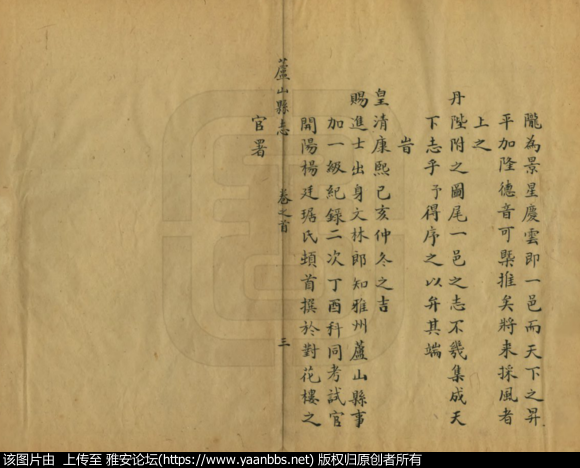 隴為景星慶雲即一邑而天下之昇
平加隆德音可槩推矣將来採風者
上之
丹陛附之圖尾一邑之志不幾集成天
下志乎予得序之以弁其端
旹
皇清康熙己亥仲冬之吉
賜進士出身文林郎知雅州蘆山縣事
加一級紀録二次丁酉科同考試官
開陽楊廷琚氏頓首撰於對花樓之
官署
蘆山縣志 卷之首 三
该图片由 上传至 雅安论坛(https://www.yaanbbs.net) 版权归原创者所有